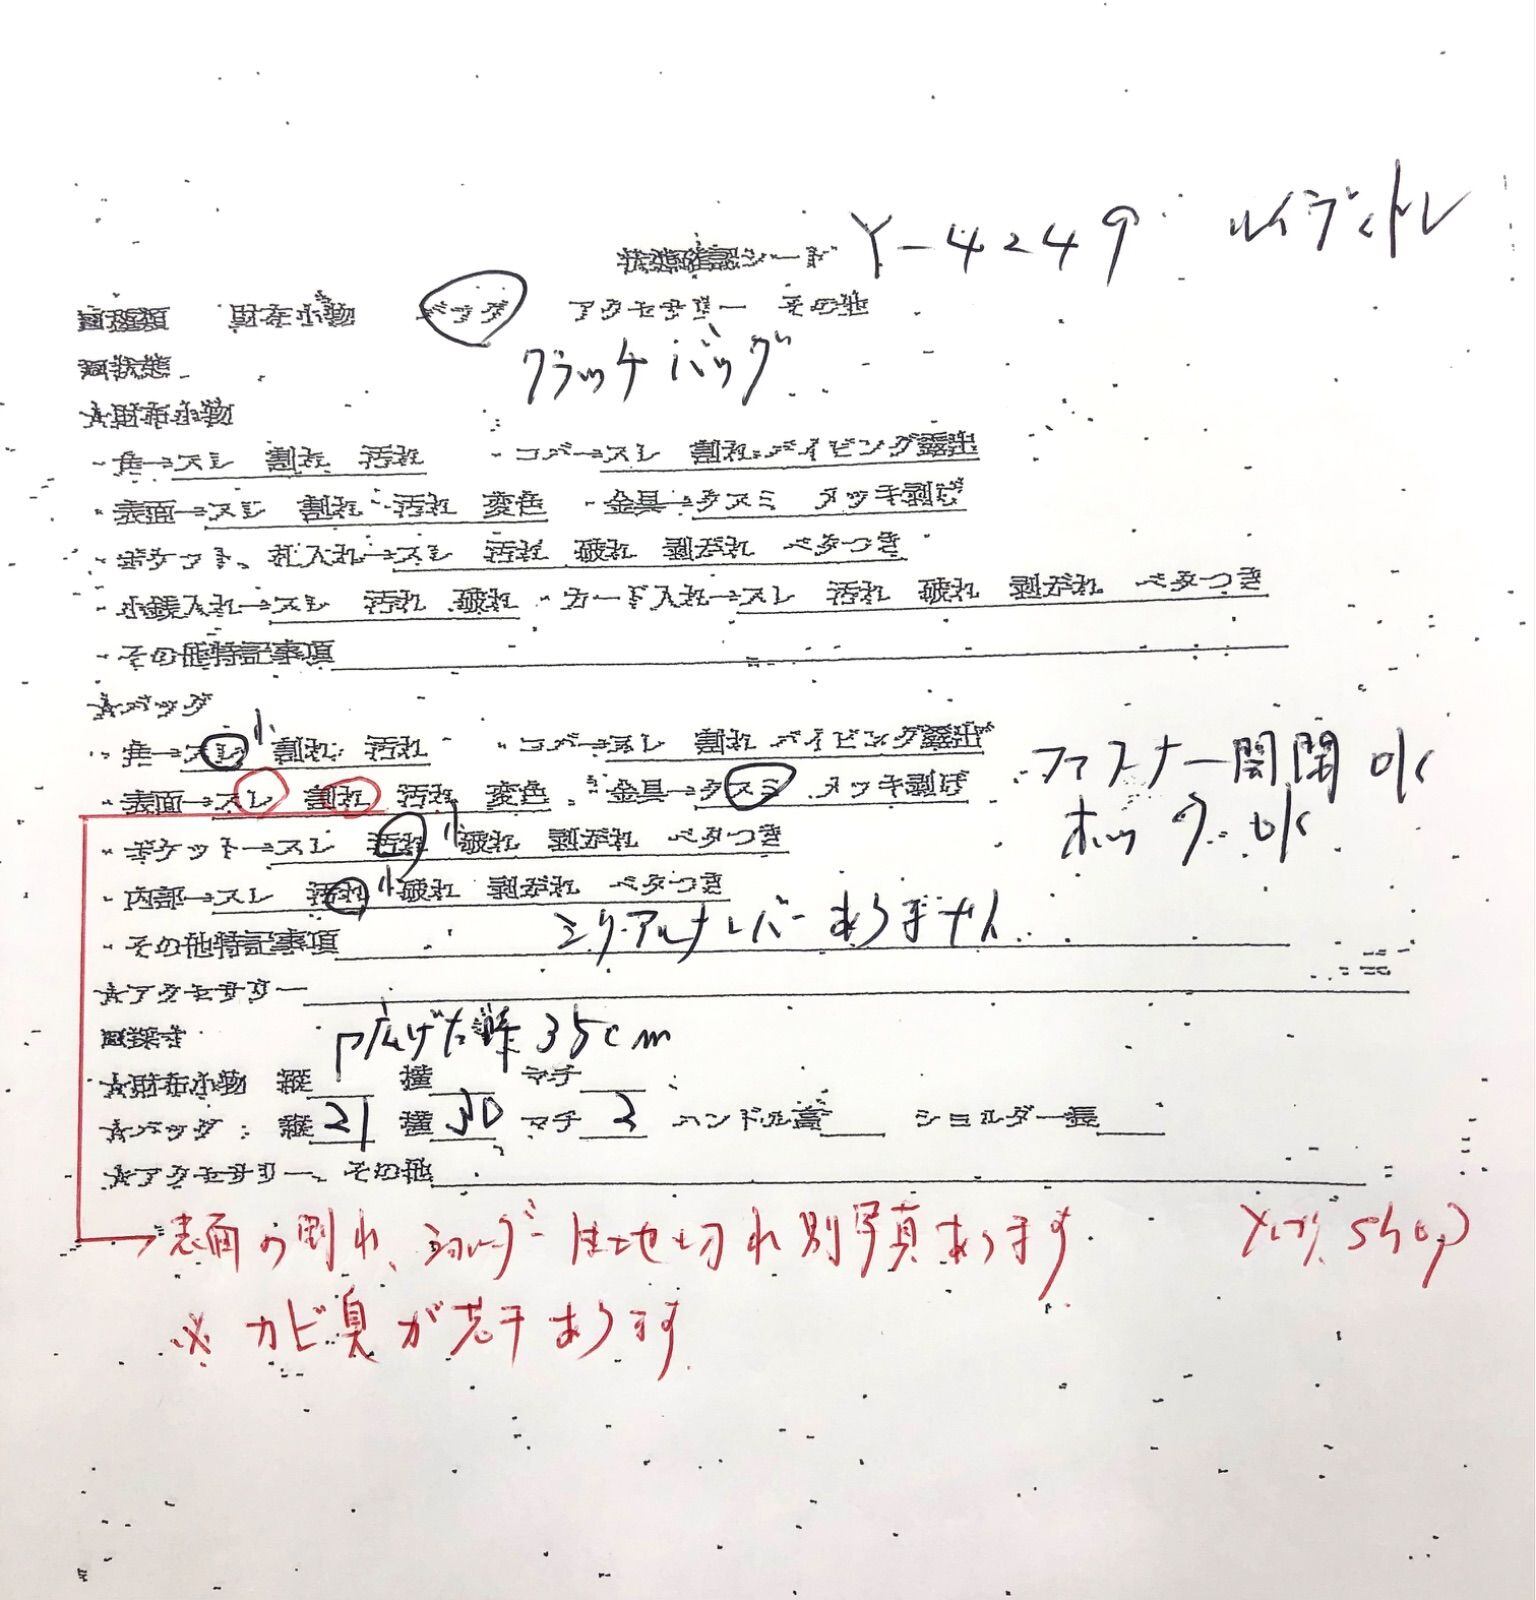 状態確認シート Y-4249 ルイヴィトン
□種類 財布小物 バッグ アクセサリー その他
クラッチバッグ
□状態
☆財布小物
・角→スレ 割れ 汚れ ・コバ→スレ 割れ パイピング露出
・表面→スレ 割れ 汚れ 変色 ・金具→クスミ メッキ剥げ
・ポケット、札入れ→スレ 汚れ 破れ 剥がれ ベタつき
・小銭入れ→スレ 汚れ 破れ ・カード入れ→スレ 汚れ 破れ 剥がれ ベタつき
・その他特記事項
☆バッグ
・角→スレ 小 割れ 汚れ ・コバ→スレ 割れ パイピング露出
・表面→スレ 割れ 汚れ 変色 ・金具→クスミ メッキ剥げ
ファスナー開閉 ok
ホック ok
・ポケット→スレ 汚れ 小 破れ 剥がれ ベタつき
・内部→スレ 汚れ 小 破れ 剥がれ ベタつき
・その他特記事項 シリアルナンバーありません
☆アクセサリー
□採寸 広げた時 35cm
☆財布小物 縦 横 マチ
☆バッグ 縦 21 横 30 マチ 2 ハンドル高 ショルダー長
☆アクセサリー、その他
→表面の割れ、生地切れ別写真あります
shop
※カビ臭が若干あります